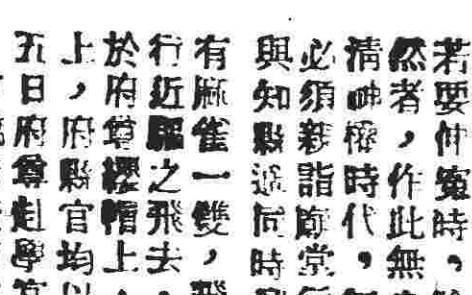 若要伸冤時，
然者，作此無
清　極時代，
必須親詣　堂
與知縣　同時
有麻雀一雙，飛
行近　之飛去，
於府尊櫻帽上，
上，府縣官均以
五日府尊赴學宮